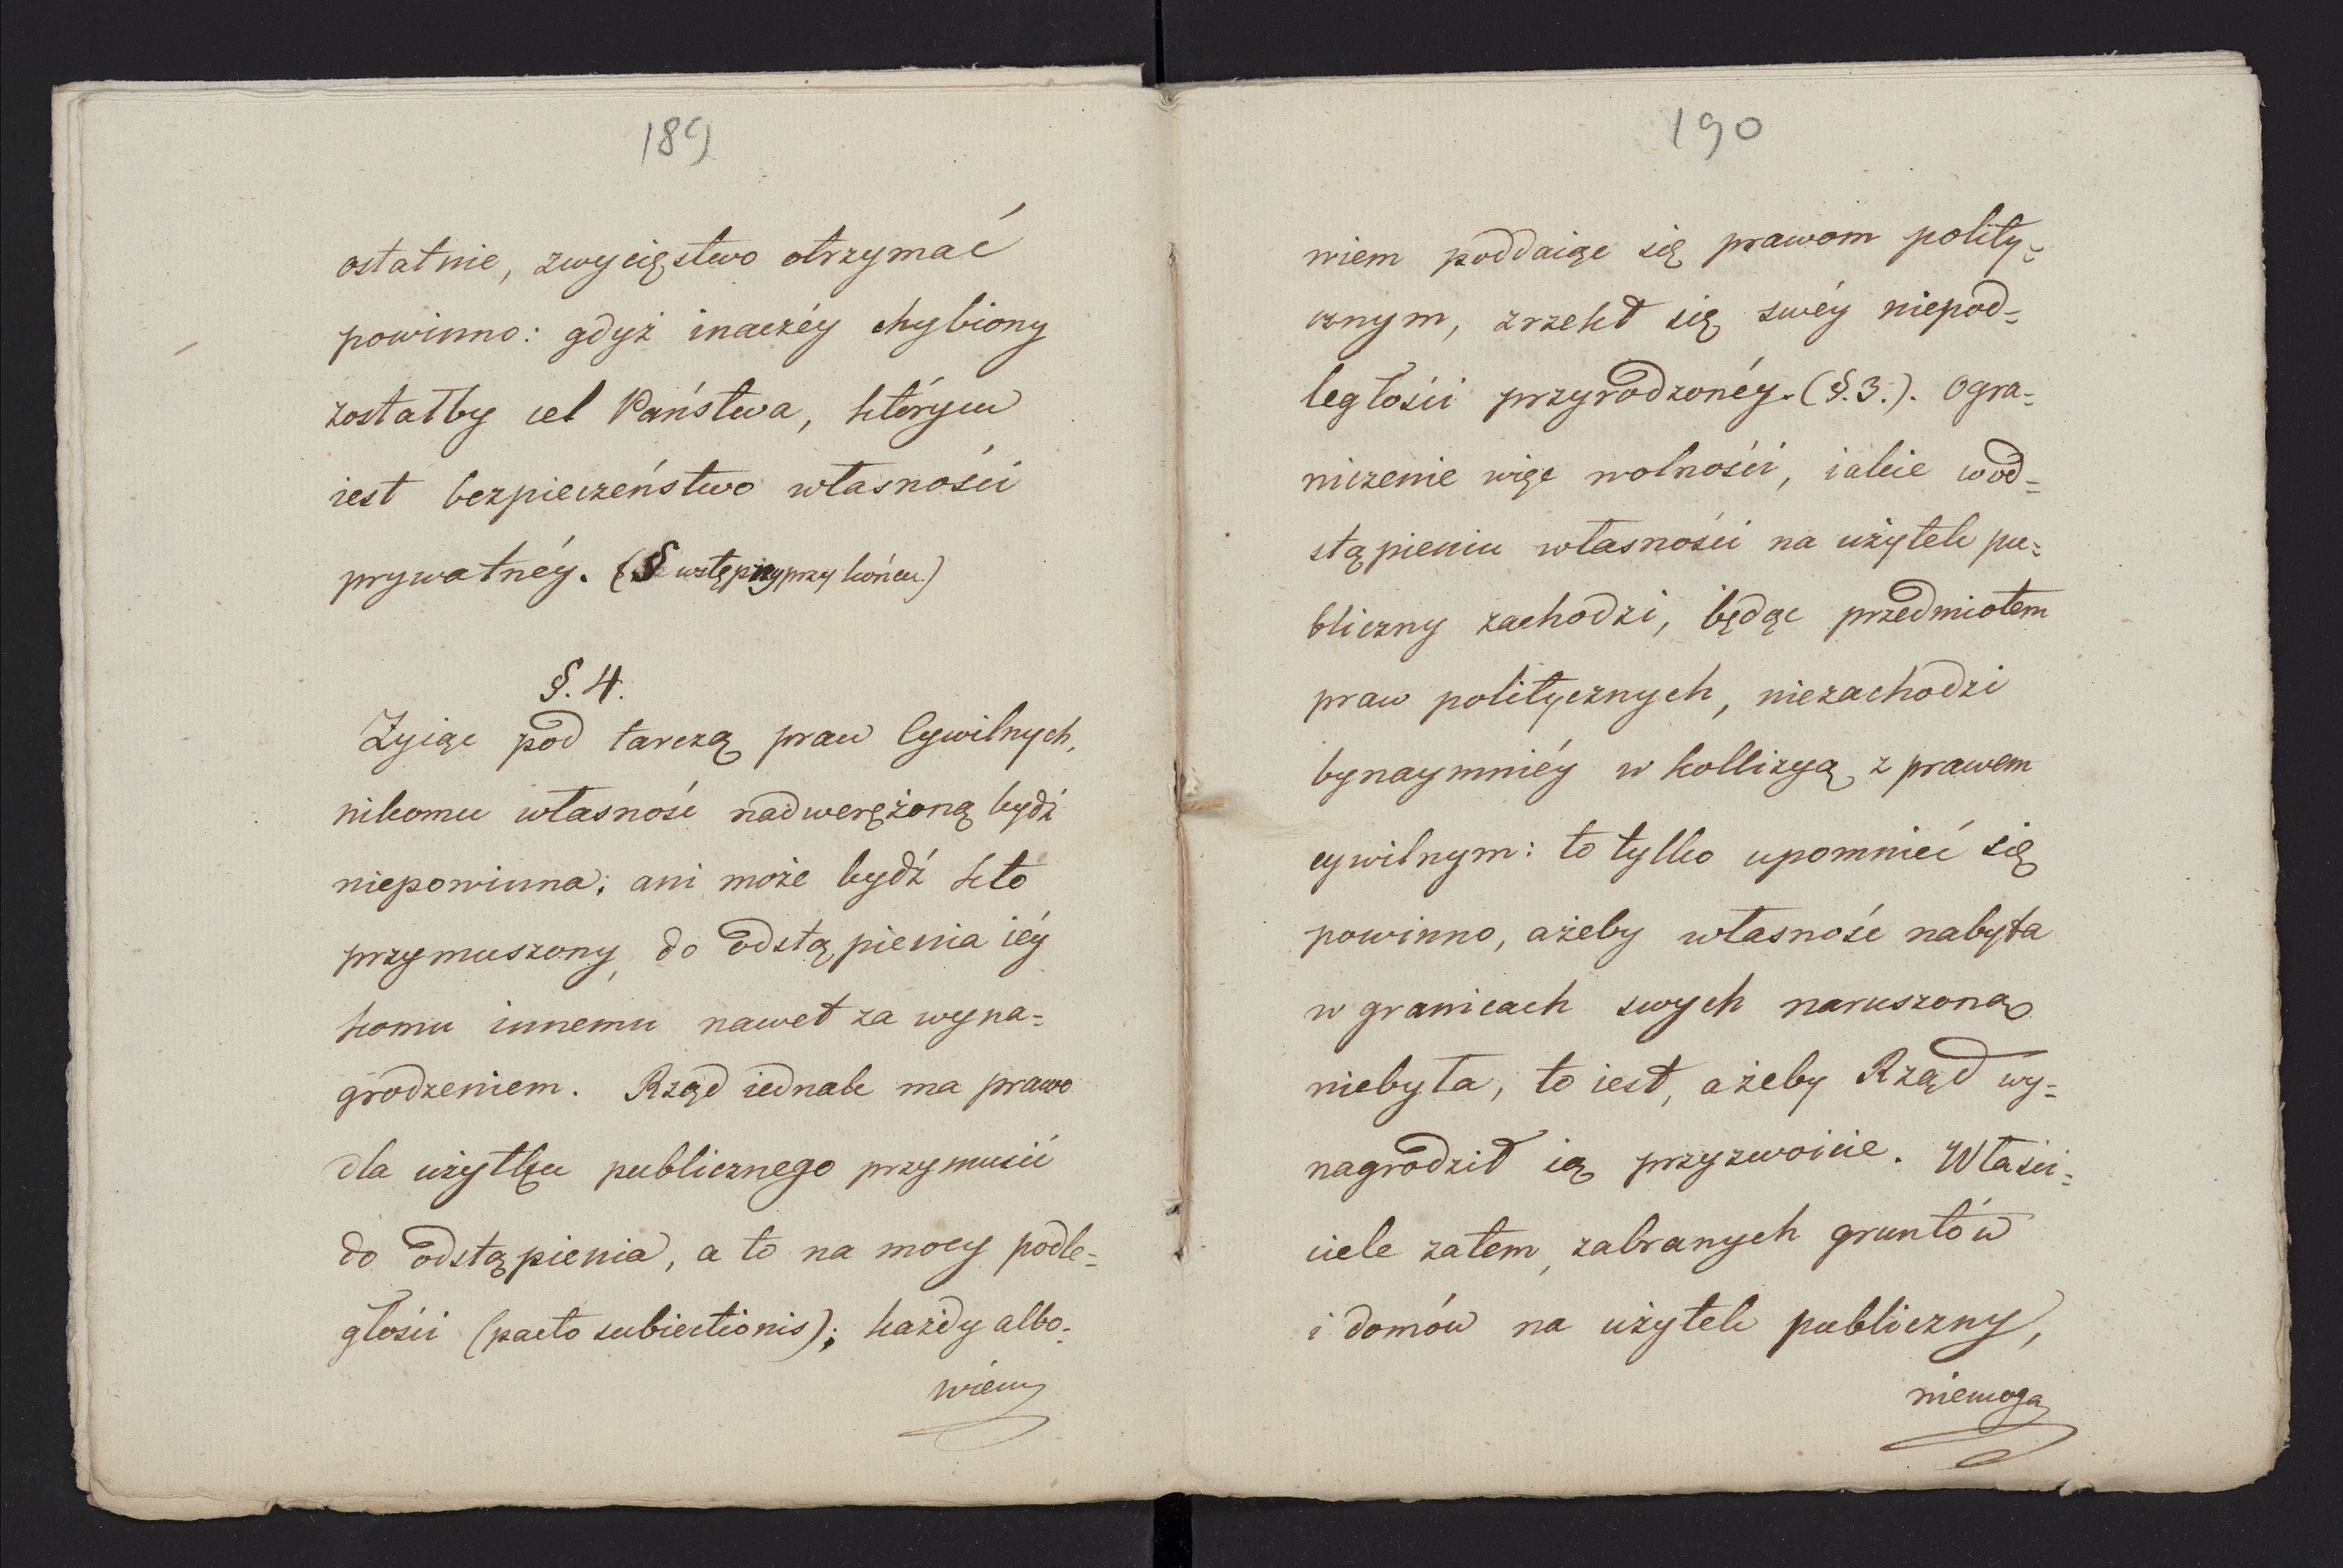 189
ostatnie, zwycięstwo otrzymać
powinno: gdyż inaczéy chybiony
zostałby cel Państwa, którym
iest bezpieczeństwo własności
prywatnéy. (§ wstępny przy końcu.)
§. 4.
Zyiąc pod tarczą praw Cywilnych,
nikomu własność nadwerężoną bydź
niepowinna; ani może bydź kto
przymuszony, do odstąpienia iéy
komu innemu nawet za wyna=
grodzeniem. Rząd iednak ma prawo
dla użytku publicznego przymusić
do odstąpienia, a to na mocy podle=
głości (pacto subiectionis); każdy albo=
wiem
190
wiem poddaiąc się prawom polity=
cznym, zrzekł się swéy niepod=
ległości przyrodzonéy. (§. 3.). Ogra=
niczenie więc wolności, iakie w od=
stąpieniu własności na użytek pu=
bliczny zachodzi, będąc przedmiotem
praw politycznych, niezachodzi
bynaymniéy w kollizyą z prawem
cywilnym: to tylko upomnieć się
powinno, ażeby własność nabyta
w granicach swych naruszoną
niebyła, to iest, ażeby Rząd wy=
nagrodził ią przyzwoicie. Właści=
ciele zatem, zabranych gruntów
i domów na użytek publiczny,
niemogą